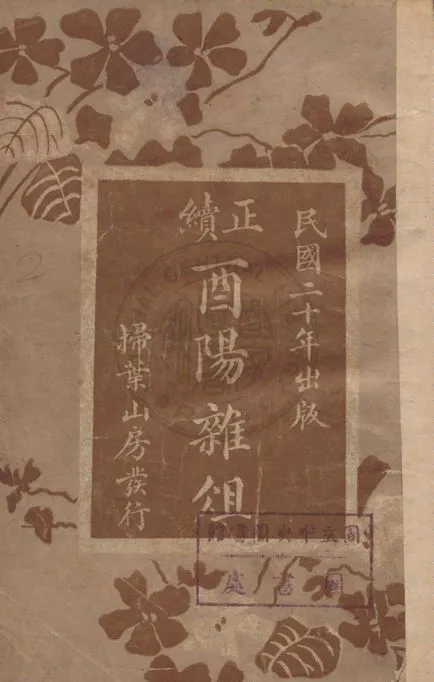 民國二十年出版
正續
酉陽雜俎
掃葉山房發行
國立中央圖書館